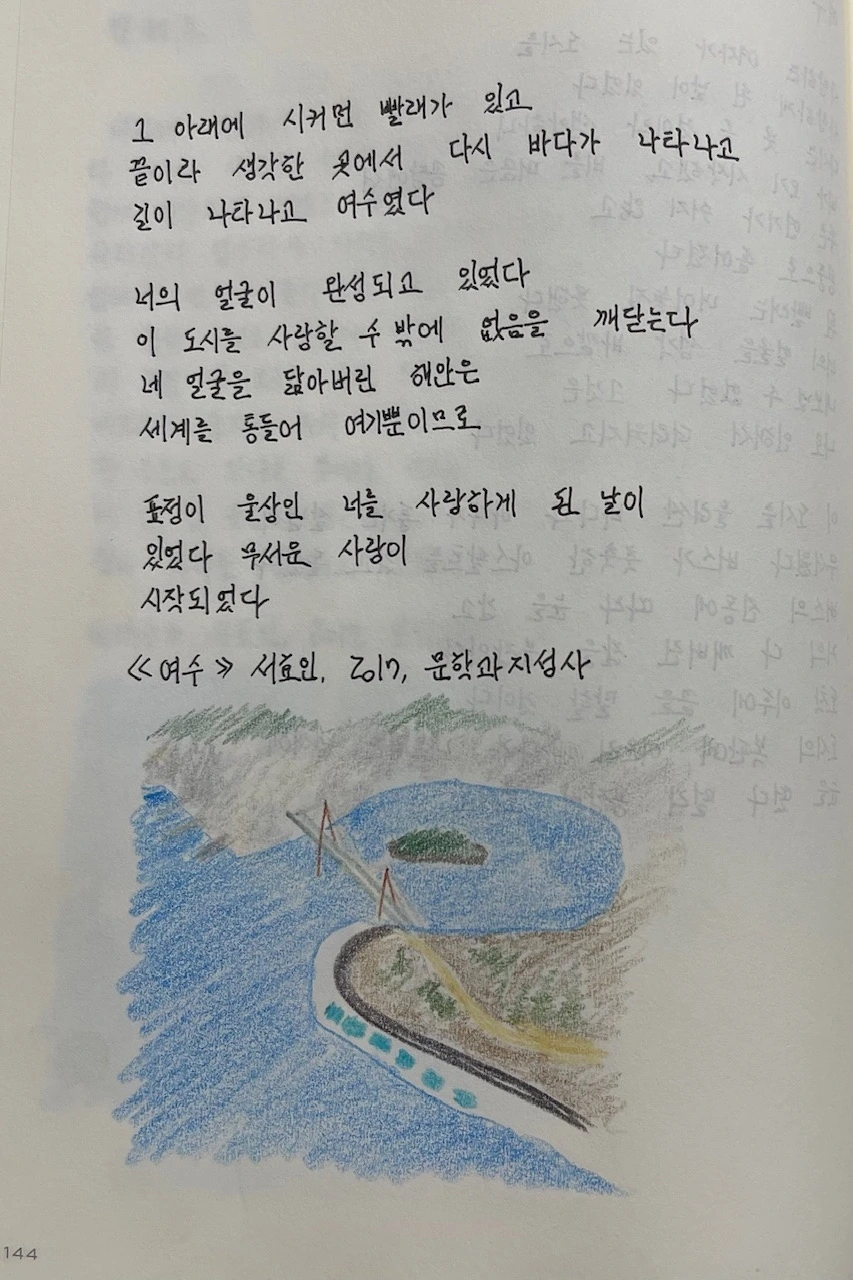 그 아래에 시커먼 빨래가 있고
끝이라 생각한 곳에서 다시 바다가 나타나고
길이 나타나고 여수였다
너의 얼굴이 완성되고 있었다
이 도시를 사랑할 수밖에 없음을 깨닫는다
네 얼굴을 닮아버린 해안은
세계를 통틀어 여기뿐이므로
표정이 울상인 너를 사랑하게 된 날이
있었다 무서운 사랑이
시작되었다
≪여수≫ 서효인, 2017, 문학과지성사
144